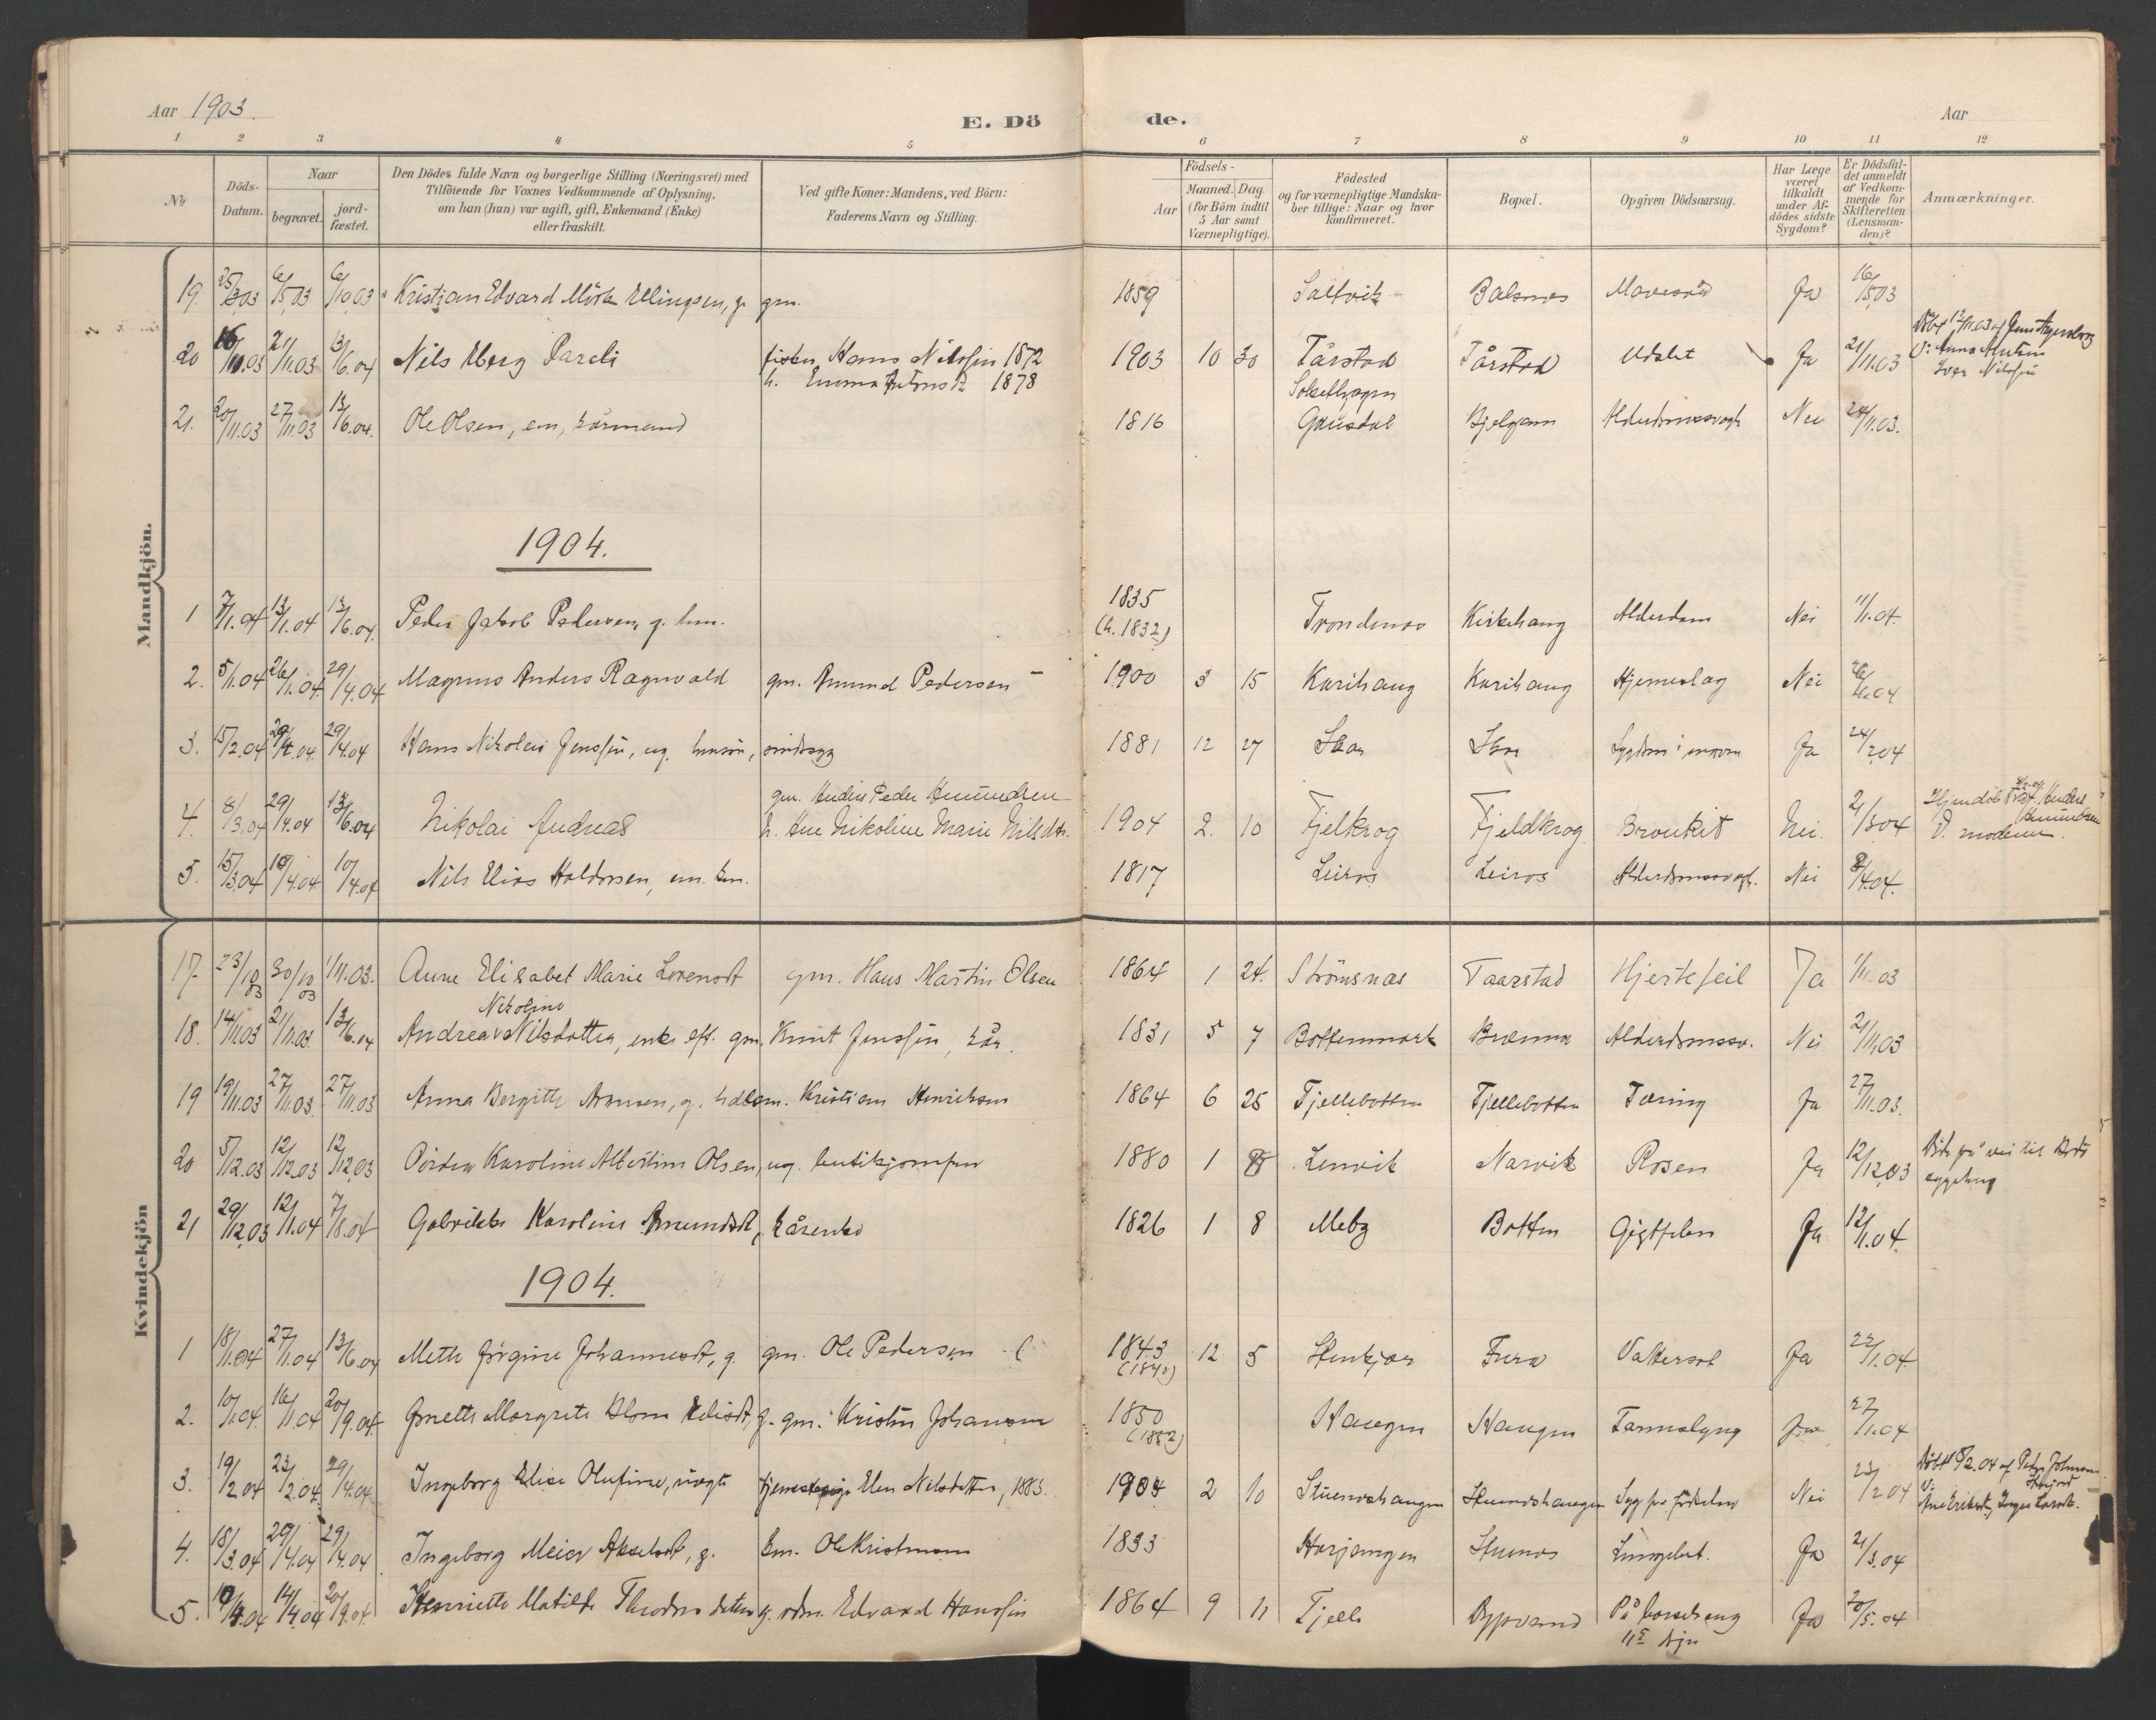 Aar 1903.
E. Dö
de.
Aar
1 2 3 4 5 6 7 8 9 10 11 12
№
Döds-Datum.
Naar
begravet.
jord-fæstet.
Den Dödes fulde Navn og borgerlige Stilling (Næringsvei) med
Tilföiende for Voxnes Vedkommende af Oplysning,
om han (hun) var ugift, gift, Enkemand (Enke)
eller fraskilt.
Ved gifte Koner: Mandens, ved Börn:
Faderens Navn og Stilling.
Födsels-
Aar
Maaned. Dag.
(for Börn indtil
5 Aar samt
Værnepligtige).
Födested
og for værnepligtige Mandska-
ber tillige: Naar og hvor
konfirmeret.
Bopæl.
Opgiven Dödsaarsag.
Har Læge
været
tilkaldt
under Af-
dödes sidste
Sygdom?
Er Dödsfal-
det anmeldt
af Vedkom-
mende for
Skifteretten
(Lensman-
den)?
Anmærkninger.
Mandkjön.
19. 6/5 03 6/10 03 Kristian Edvard Mörk Ellingsen, g. gm. 1859 Saltvik Balsnes Mavesår Ja 16/5 03
20 16/11.03 21/11.03 13/6.04 Nils Eberg Pareli fisker Hans Nilssen 1872 1903 10 30 Tårstad Tårstad Udslet Ja 21/11.03
h. Emma 1878
21. 20/11.03 27/11.03 13/6.04. Ole Olsen, em, kårmand 1816 Gausdal Alderdomssvagh Nei 24/11.03.
1904.
1 7/1.04 13/1.04 13/6.04. Peder Jakob Pedersen, g. hm. 1835 Trondenes Kirkehaug Alderdom Nei 11/1.04.
(h. 1832)
2. 5/1.04 26/1.04. 29/4.04 Magnus Anders Ragnvald gm. Amund Pedersen 1900 3 15 Karihaug Karihaug Hjerneslag Nei
3. 15/2.04 29/4.04. 29/4.04 Hans Nikolai Jenssen, ug. hmsön, sindssyg 1881 12 27 Skar Skar Sygdom i Ja 24/2.04
gm. Anders Peder Amundsen
4. 8/3.04 29/4.04 13/6.04 Nikolai Andreas h. Ane Nikoline Marie Nilsdtr. 1904 2. 10 Fjelkrog Fjeldkrog Bronkit Nei. 21/3.04
V. moderen.
5. 15/3.04 10/4.04 10/4.04 Nils Elias Haldorsen, em. km. 1817 Leiros Leiros Alderdomssvagh. Nei 8/4.04.
Kvindekjön
17. 23/10 03 30/10 03 1/11.03. Anne Elisabet Marie Lorensdt gm. Hans Martin Olsen 1864 1 24. Strömsnes Taarstad Hjertefeil Ja 1/11.03
Nikoline
18. 14/11.03 21/11.03. 13/6.04 Andrea Nilsdatter, enke eft. gm. Knut Jenssen, kår. 1831 5 7 Bottenmark Brenna Alderdomssv. Nei 21/11.03
19 19/11.03 27/11.03. 27/11.03 Anna Bergitte Arnesen, g. Kristian Henriksen 1864 6 25 Fjellebotten Fjellebotten Tæring Ja 27/11.03.
20 5/12.03 12/12.03 12/12.03 Dordea Karoline Albertine Olsen, ug. butikjomfru 1880 1 Lenvik Narvik Rosen Ja 12/12.03
Död på vei til Bodö
sygehus
21 29/12.03 12/1.04 7/8.04 Gabrikke Karoline Amundsdt, kårenke 1826 1 8 Meby Botten Gigtfeber Ja 12/1.04.
1904.
1 18/1.04 27/1.04 13/6.04 Mette Jörgine Johannesdt, g. gm. Ole Pedersen 1843 12 5 Stenkjær Furu Vattersot Ja 22/1.04
(1840)
2. 10/1.04. 16/1.04 20/9.04. Anette Margrete Blom Edisdt, g. gm. Kristen Johansen 1850 Haugen Haugen Tarmslyng Ja 27/1.04
3. 19/2.04 23/2.04. 29/4.04. Ingeborg Elise Olufine, uægte tjenestepige Elen Nilsdatter, 1883. 1904 2 10 Stueneshaugen Stueneshaugen Syg fra födselen Nei 23/2.04
4. 18/3.04 29/4.04 29/4.04 Ingeborg Meier Akselsdt, g. km. Ole Kristensen 1833 Herjangen Stuenes Lungebet. Ja 21/3.04
5. 14/4.04 20/9.04. Henriette Matilde Theodorsdatter g. rdm. Edvard Hanssen 1864 9 11 Fjelle Dypvand På barselseng Ja 20/5.04